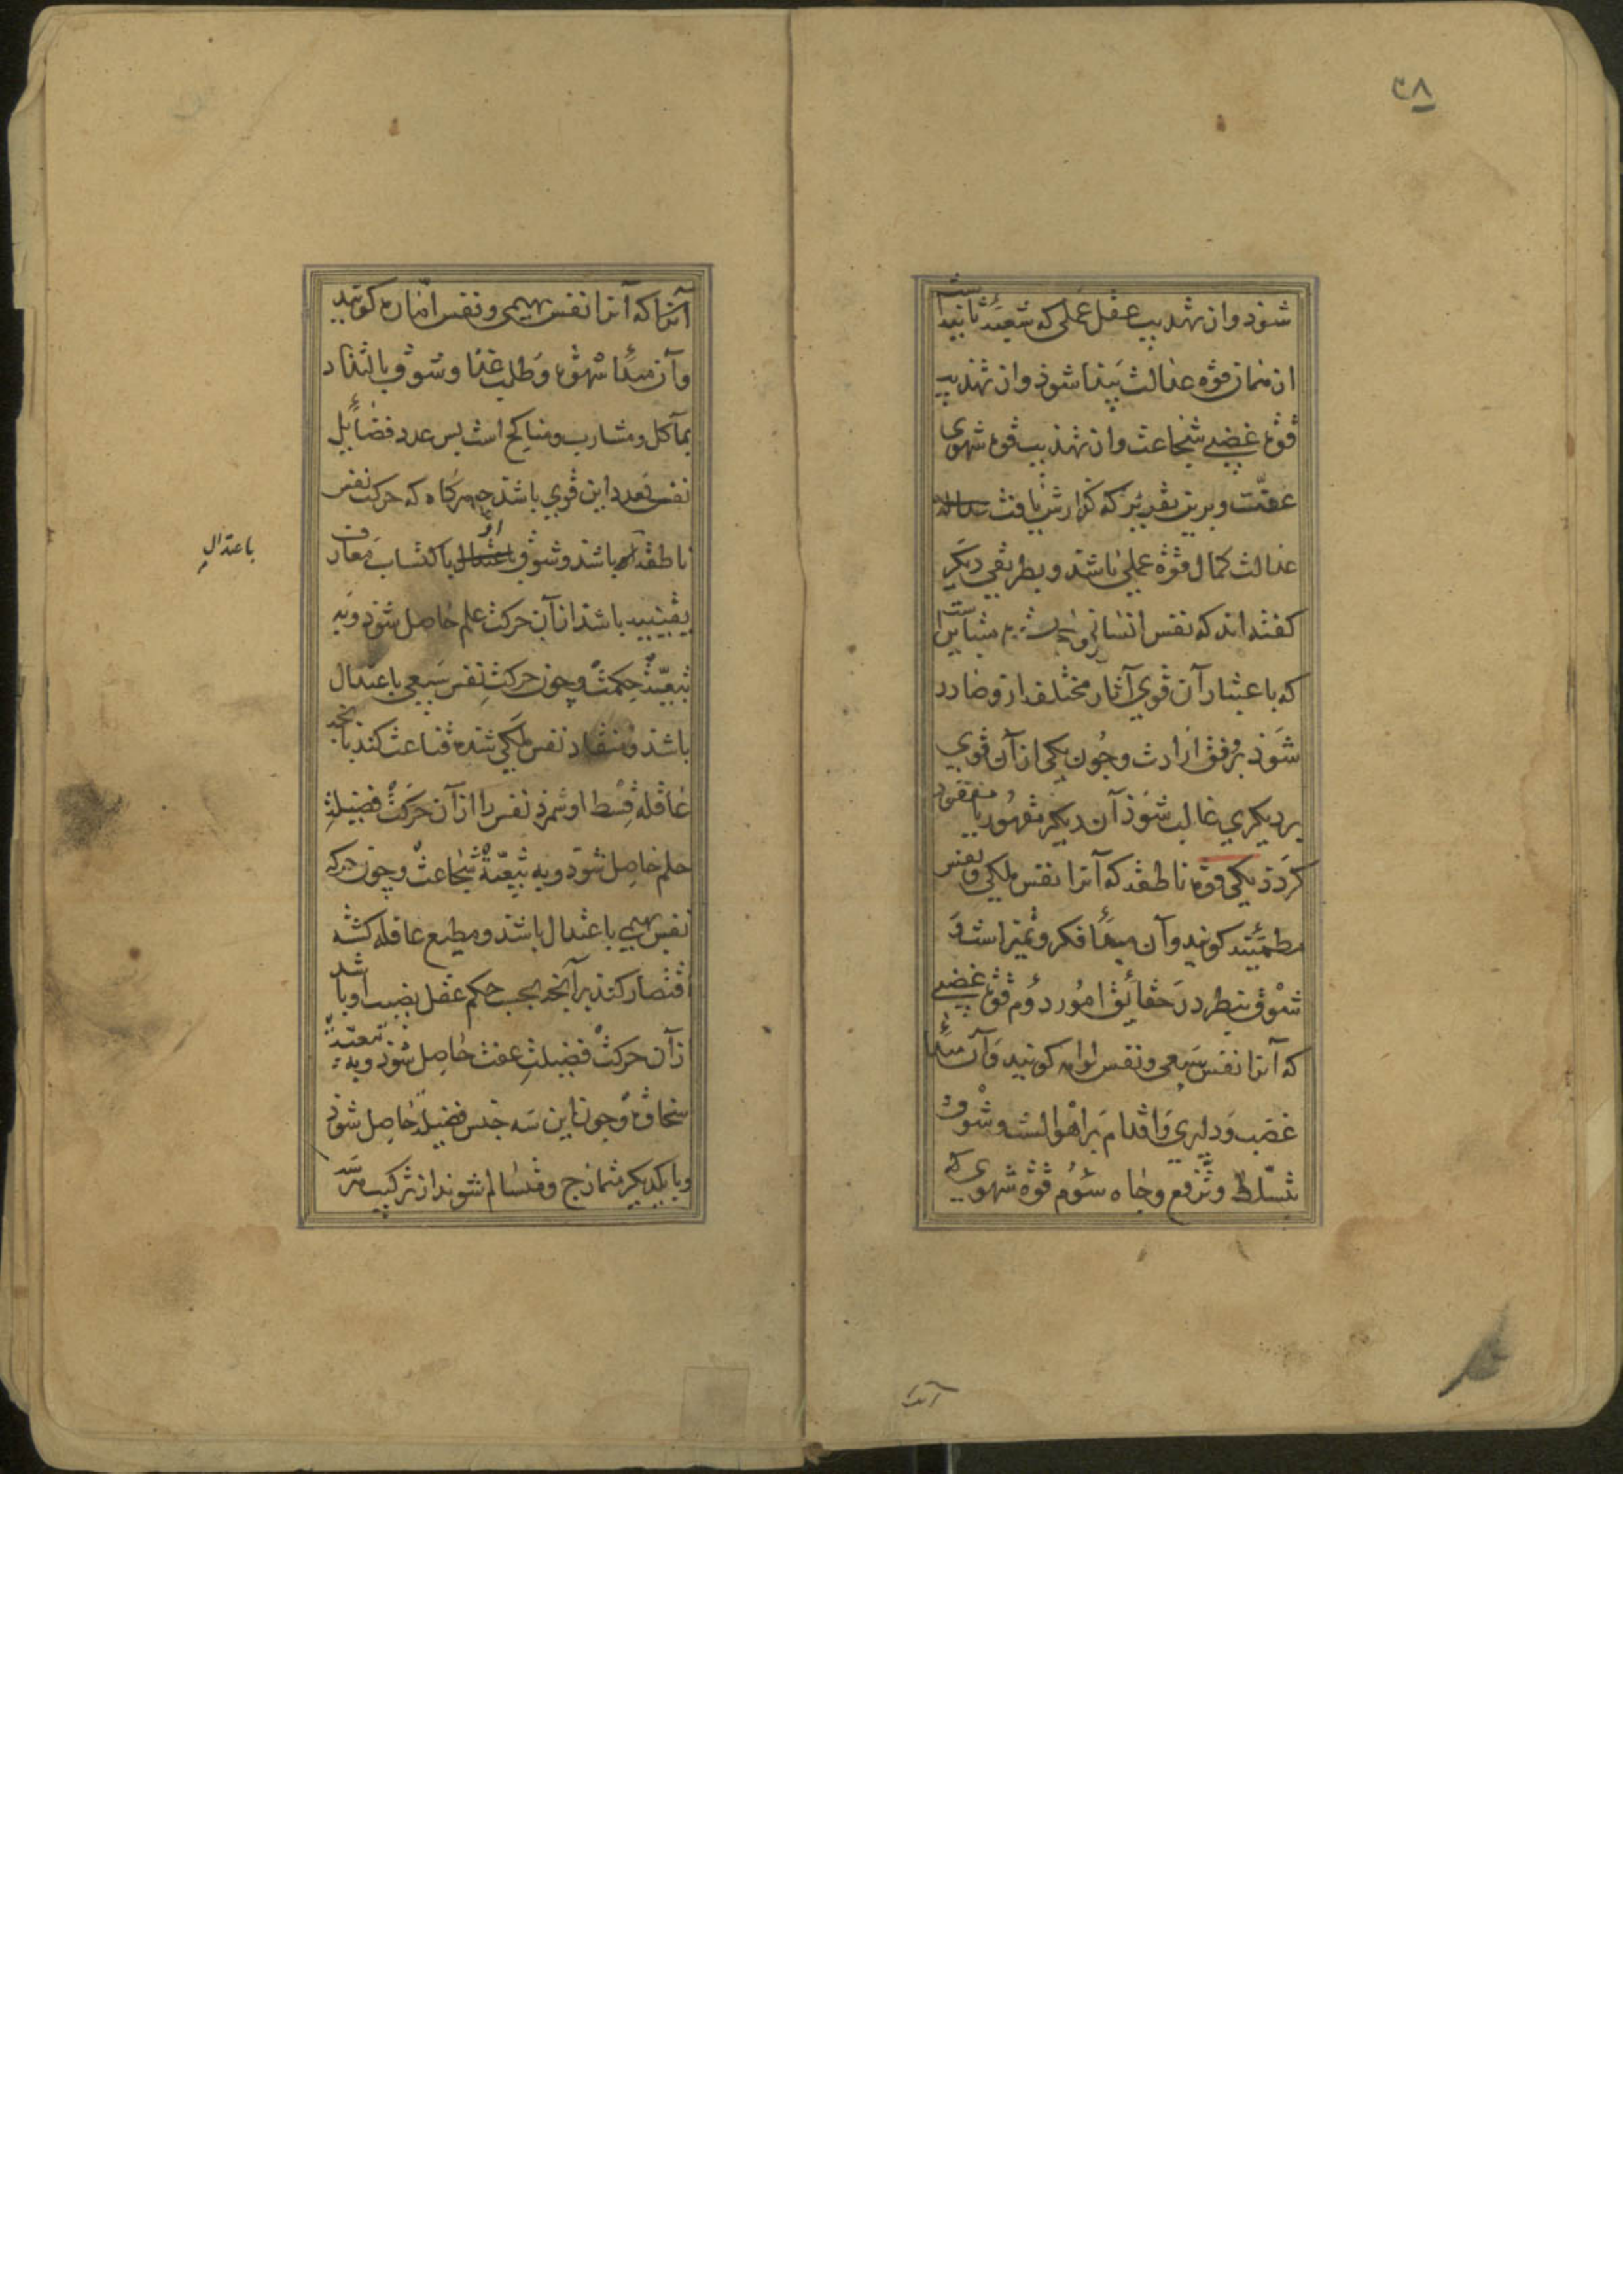 ۳۸
شود و از تهذیب عقل عملی که شعبهٔ ثانیست
از همان قوه عدالت پیدا شود و از تهذیب
قوه غضبی شجاعت و از تهذیب قوه شهوی
عفّت و برین تقدیر که گزارش یافت
عدالت کمال قوّه عملی باشد و بطریقی دیگر
گفته اند که نفس انسانی را قوت متباین است
که باعتبار آن قوی آثار مختلفه ازو صادر
شود بر وفق ارادت و چون یکی از آن قوی
بر دیگری غالب شود آن دیگر مقهور یا مفقود
گردد یکی قوه ناطقه که آنرا نفس ملکی و نفس
مطمئنه گویند و آن مبدأ فکر و تمیز است و
شوق بنظر در حقائق امور دوم قوه غضبی
که آنرا نفس سبعی و نفس لوامه گویند و آن مبدأ
غضب و دلیری و اقدام بر اهوالست و شوق
تسلّط و ترفع و جاه سوم قوّه شهوی که
آنرا
آنرا که آنرا نفس بهیمی و نفس امّاره گویند
و آن مبدأ شهوة و طلب غذا و شوق بالتذاذ
بمآکل و مشارب و مناکح است پس عدد فضائل
نفس بعدد این قوی باشد چه هرگاه که حرکت نفس
ناطقه باشد و شوق او باکتساب معارف
باعتدال
یقینیه باشد از آن حرکت علم حاصل شود و به
تبعیّت حکمت و چون حرکت نفس سبعی باعتدال
باشد و منقاد نفس ملکی شده قناعت کند بآنچه
عاقله قسط او شمرد نفس را از آن حرکت فضیلت
حلم حاصل شود و به تبعیّة شجاعت و چون حرکه
نفس بهیمی باعتدال باشد و مطیع عاقله گشته
اقتصار کند بر آنچه بحسب حکم عقل نصیب او باشد
از آن حرکت فضیلت عفت حاصل شود و به تبعیّت
سخاوة و چون این سه جنس فضیله حاصل شود
و با یکدیگر متمازج و متسالم شوند از ترکیب هر سه